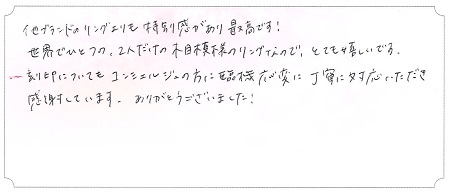 他ブランドのリングよりも特別感があり最高です!
世界でひとつの、2人だけの木目模様のリングなので、とても嬉しいです。
刻印についてもコンシェルジュの方に臨機応変に丁寧に対応いただき
感謝しています。ありがとうございました!